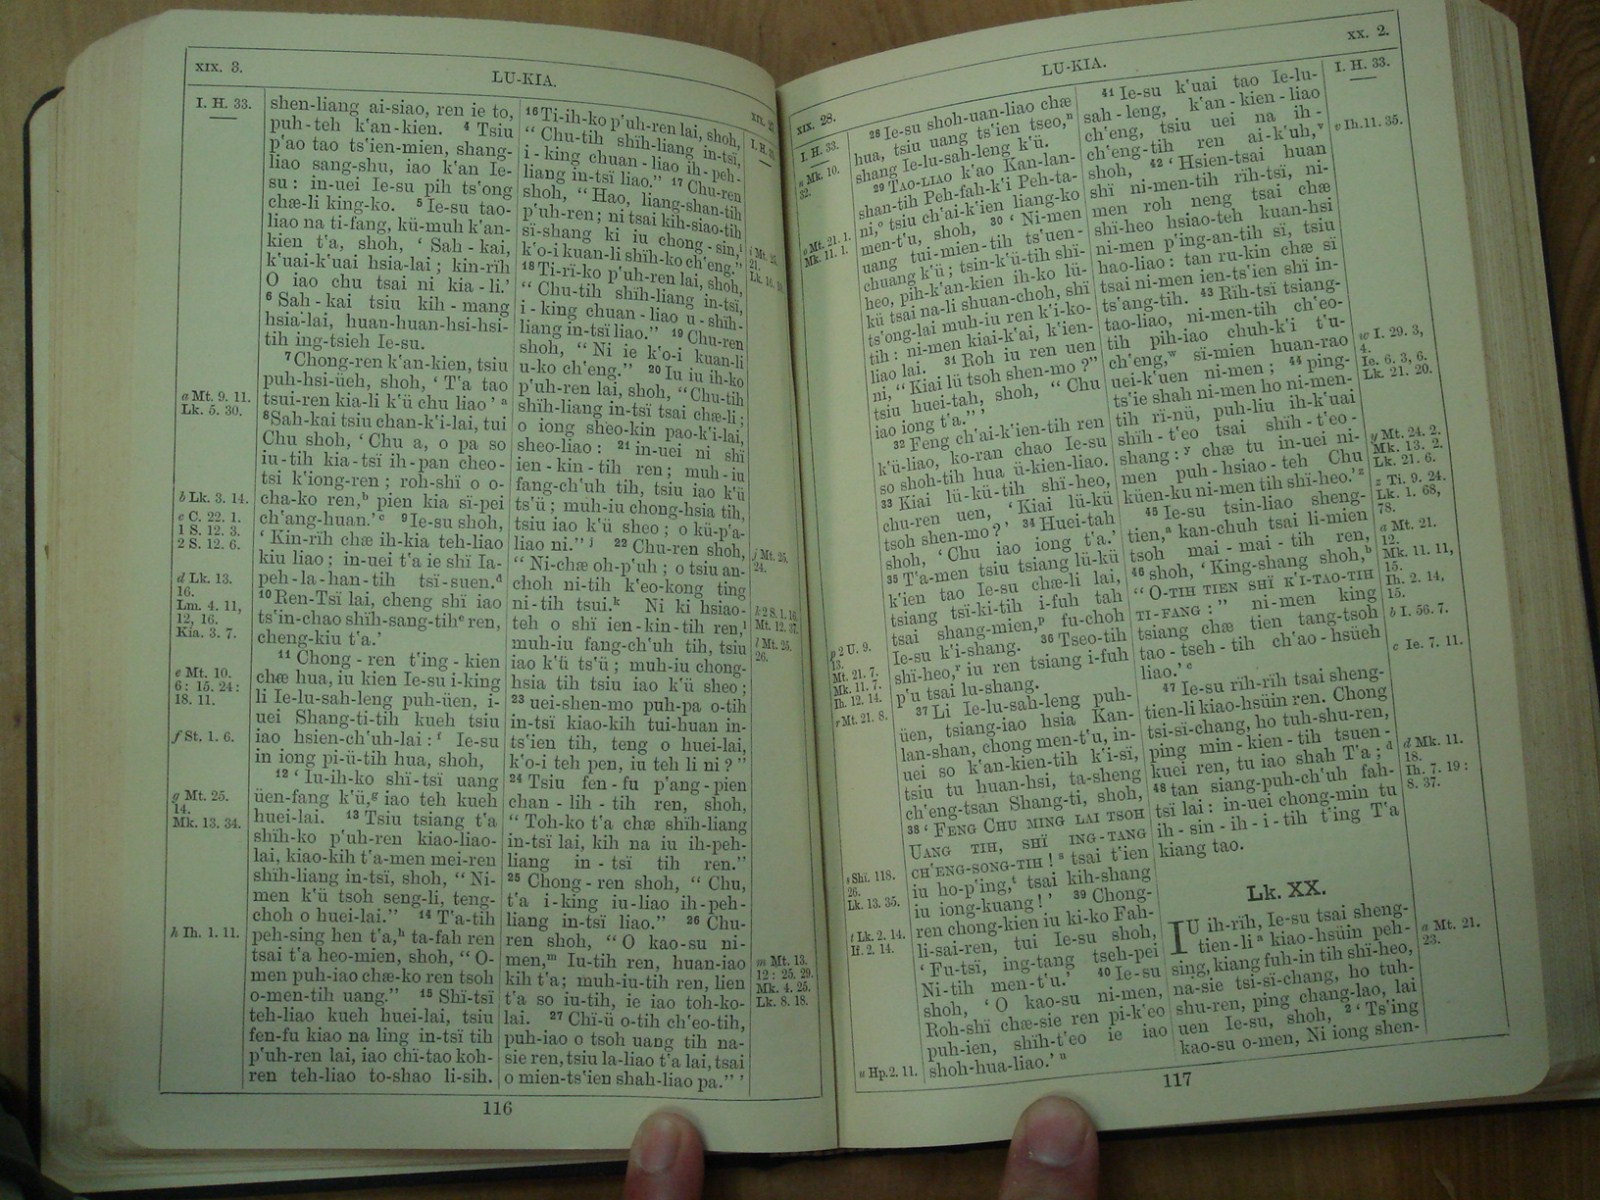 XIX. 3.
LU-KIA.
I. H. 33.
shen-liang ai-siao, ren ie to,
puh-teh k'an-kien. 4 Tsiu
p'ao tao ts'ien-mien, shang-
liao sang-shu, iao k'an Ie-
su: in-uei Ie-su pih ts'ong
chæ-li king-ko. 5 Ie-su tao-
liao na ti-fang, kü-muh k'an-
kien t'a, shoh, ‘Sah-kai,
k'uai-k'uai hsia-lai; kin-rïh
O iao chu tsai ni kia-li.’
6 Sah-kai tsiu kih-mang
hsia-lai, huan-huan-hsi-hsi-
tih ing-tsieh Ie-su.
7 Chong-ren k'an-kien, tsiu
puh-hsi-üeh, shoh, ‘T'a tao
tsui-ren kia-li k'ü chu liao’ a
8 Sah-kai tsiu chan-k'i-lai, tui
Chu shoh, ‘Chu a, o pa so
iu-tih kia-tsï ih-pan cheo-
tsi k'iong-ren; roh-shï o o-
cha-ko ren,b pien kia sï-pei
ch'ang-huan.’c 9 Ie-su shoh,
‘Kin-rïh chæ ih-kia teh-liao
kiu liao; in-uei t'a ie shï Ia-
peh-la-han-tih tsï-suen.d
10 Ren-Tsï lai, cheng shï iao
ts'in-chao shïh-sang-tihe ren,
cheng-kiu t'a.’
11 Chong-ren t'ing-kien
chæ hua, iu kien Ie-su i-king
li Ie-lu-sah-leng puh-üen, i-
uei Shang-ti-tih kueh tsiu
iao hsien-ch'uh-lai:f Ie-su
in iong pi-ü-tih hua, shoh,
12 ‘Iu-ih-ko shï-tsï uang
üen-fang k'ü,g iao teh kueh
huei-lai. 13 Tsiu tsiang t'a
shïh-ko p'uh-ren kiao-liao-
lai, kiao-kih t'a-men mei-ren
shïh-liang in-tsï, shoh, “Ni-
men k'ü tsoh seng-li, teng-
choh o huei-lai.” 14 T'a-tih
peh-sing hen t'a,h ta-fah ren
tsai t'a heo-mien, shoh, “O-
men puh-iao chæ-ko ren tsoh
o-men-tih uang.” 15 Shï-tsï
teh-liao kueh huei-lai, tsiu
fen-fu kiao na ling in-tsï tih
p'uh-ren lai, iao chï-tao koh-
ren teh-liao to-shao li-sih.
a Mt. 9. 11.
Lk. 5. 30.
b Lk. 3. 14.
c C. 22. 1.
1 S. 12. 3.
2 S. 12. 6.
d Lk. 13.
16.
Lm. 4. 11,
12, 16.
Kia. 3. 7.
e Mt. 10.
6: 15. 24:
18. 11.
f St. 1. 6.
g Mt. 25.
14.
Mk. 13. 34.
h Ih. 1. 11.
16 Ti-ih-ko p'uh-ren lai, shoh,
“Chu-tih shïh-liang in-tsï,
i-king chuan-liao ih-peh-
liang in-tsï liao.” 17 Chu-ren
shoh, “Hao, liang-shan-tih
p'uh-ren; ni tsai kih-siao-tih
sï-shang ki iu chong-sin,i
k'o-i kuan-li shïh-ko ch'eng.”
18 Ti-rï-ko p'uh-ren lai, shoh,
“Chu-tih shïh-liang in-tsï,
i-king chuan-liao u-shïh-
liang in-tsï liao.” 19 Chu-ren
shoh, “Ni ie k'o-i kuan-li
u-ko ch'eng.” 20 Iu iu ih-ko
p'uh-ren lai, shoh, “Chu-tih
shïh-liang in-tsï tsai chæ-li;
o iong sheo-kin pao-k'i-lai,
sheo-liao: 21 in-uei ni shï
ien-kin-tih ren; muh-iu
fang-ch'uh tih, tsiu iao k'ü
ts'ü; muh-iu chong-hsia tih,
tsiu iao k'ü sheo; o kü-p'a-
liao ni.” j 22 Chu-ren shoh,
“Ni-chæ oh-p'uh; o tsiu an-
choh ni-tih k'eo-kong ting
ni-tih tsui.k Ni ki hsiao-
teh o shï ien-kin-tih ren,l
muh-iu fang-ch'uh tih, tsiu
iao k'ü ts'ü; muh-iu chong-
hsia tih tsiu iao k'ü sheo;
23 uei-shen-mo puh-pa o-tih
in-tsï kiao-kih tui-huan in-
ts'ien tih, teng o huei-lai,
k'o-i teh pen, iu teh li ni?”
24 Tsiu fen-fu p'ang-pien
chan-lih-tih ren, shoh,
“Toh-ko t'a chæ shïh-liang
in-tsï lai, kih na iu ih-peh-
liang in-tsï tih ren.”
25 Chong-ren shoh, “Chu,
t'a i-king iu-liao ih-peh-
liang in-tsï liao.” 26 Chu-
ren shoh, “O kao-su ni-
men,m Iu-tih ren, huan-iao
kih t'a; muh-iu-tih ren, lien
t'a so iu-tih, ie iao toh-ko-
lai. 27 Chï-ü o-tih ch'eo-tih,
puh-iao o tsoh uang tih na-
sie ren, tsiu la-liao t'a lai, tsai
o mien-ts'ien shah-liao pa.”’
j Mt. 25.
24.
k 2 S. 1. 16.
Mt. 12. 37.
l Mt. 25.
26.
m Mt. 13.
12: 25. 29.
Mk. 4. 25.
Lk. 8. 18.
116
XIX. 28.
LU-KIA.
XX. 2.
I. H. 33.
n Mk. 10.
32.
o Mt. 21. 1.
Mk. 11. 1.
p 2 U. 9.
13.
Mt. 21. 7.
Mk. 11. 7.
Ih. 12. 14.
r Mt. 21. 8.
s Shï. 118.
26.
Lk. 13. 35.
t Lk. 2. 14.
If. 2. 14.
u Hp. 2. 11.
28 Ie-su shoh-uan-liao chæ
hua, tsiu uang ts'ien tseo,n
shang Ie-lu-sah-leng k'ü.
29 TAO-LIAO k'ao Kan-lan-
shan-tih Peh-fah-k'i Peh-ta-
ni,o tsiu ch'ai-k'ien liang-ko
men-t'u, shoh, 30 ‘Ni-men
uang tui-mien-tih ts'uen-
chuang k'ü; tsin-k'ü-tih shï-
heo, pih-k'an-kien ih-ko lü-
kü tsai na-li shuan-choh, shï
ts'ong-lai muh-iu ren k'i-ko-
tih: ni-men kiai-k'ai, k'ien-
liao lai. 31 Roh iu ren uen
ni, “Kiai lü tsoh shen-mo?”
tsiu huei-tah, shoh, “Chu
iao iong t'a.”’
32 Feng ch'ai-k'ien-tih ren
k'ü-liao, ko-ran chao Ie-su
so shoh-tih hua ü-kien-liao.
33 Kiai lü-kü-tih shï-heo,
chu-ren uen, ‘Kiai lü-kü
tsoh shen-mo?’ 34 Huei-tah
shoh, ‘Chu iao iong t'a.’
35 T'a-men tsiu tsiang lü-kü
k'ien tao Ie-su chæ-li lai,
tsiang tsï-ki-tih i-fuh tah
tsai shang-mien,p fu-choh
Ie-su k'i-shang. 36 Tseo-tih
shï-heo,r iu ren tsiang i-fuh
p'u tsai lu-shang.
37 Li Ie-lu-sah-leng puh-
üen, tsiang-iao hsia Kan-
lan-shan, chong men-t'u, in-
uei so k'an-kien-tih k'i-sï,
tsiu tu huan-hsi, ta-sheng
ch'eng-tsan Shang-ti, shoh,
38 ‘FENG CHU MING LAI TSOH
UANG TIH, SHÏ ING-TANG
CH'ENG-SONG-TIH! s tsai t'ien
iu ho-p'ing,t tsai kih-shang
iu iong-kuang!’ 39 Chong-
ren chong-kien iu ki-ko Fah-
li-sai-ren, tui Ie-su shoh,
‘Fu-tsï, ing-tang tseh-pei
Ni-tih men-t'u.’ 40 Ie-su
shoh, ‘O kao-su ni-men,
Roh-shï chæ-sie ren pi-k'eo
puh-ien, shïh-t'eo ie iao
shoh-hua-liao.’ u
41 Ie-su k'uai tao Ie-lu-
sah-leng, k'an-kien-liao
ch'eng, tsiu uei na ih-
ch'eng-tih ren ai-k'uh,v
shoh, 42 ‘Hsien-tsai huan
shï ni-men-tih rïh-tsï, ni-
men roh neng tsai chæ
shï-heo hsiao-teh kuan-hsi
ni-men p'ing-an-tih sï, tsiu
hao-liao: tan ru-kin chæ sï
tsai ni-men ien-ts'ien shï in-
ts'ang-tih. 43 Rïh-tsï tsiang-
tao-liao, ni-men-tih ch'eo-
tih pih-iao chuh-k'i t'u-
ch'eng,w sï-mien huan-rao
uei-k'uen ni-men; 44 ping-
ts'ie shah ni-men ho ni-men-
tih rï-nü, puh-liu ih-k'uai
shïh-t'eo tsai shïh-t'eo-
shang:y chæ tu in-uei ni-
men puh-hsiao-teh Chu
küen-ku ni-men tih shï-heo.’z
45 Ie-su tsin-liao sheng-
tien,a kan-chuh tsai li-mien
tsoh mai-mai-tih ren,
46 shoh, ‘King-shang shoh,b
“O-TIH TIEN SHÏ K'I-TAO-TIH
TI-FANG:” ni-men king
tsiang chæ tien tang-tsoh
tao-tseh-tih ch'ao-hsüeh
liao.’ c
47 Ie-su rïh-rïh tsai sheng-
tien-li kiao-hsüin ren. Chong
tsi-sï-chang, ho tuh-shu-ren,
ping min-kien-tih tsuen-
kuei ren, tu iao shah T'a;d
48 tan siang-puh-ch'uh fah-
tsï lai: in-uei chong-min tu
ih-sin-ih-i-tih t'ing T'a
kiang tao.
Lk. XX.
IU ih-rïh, Ie-su tsai sheng-
tien-li a kiao-hsüin peh-
sing, kiang fuh-in tih shï-heo,
na-sie tsi-sï-chang, ho tuh-
shu-ren, ping chang-lao, lai
uen Ie-su, shoh, 2 ‘Ts'ing
kao-su o-men, Ni iong shen-
I. H. 33.
v Ih. 11. 35.
w I. 29. 3,
4.
Ie. 6. 3, 6.
Lk. 21. 20.
y Mt. 24. 2.
Mk. 13. 2.
Lk. 21. 6.
z Ti. 9. 24.
Lk. 1. 68,
78.
a Mt. 21.
12.
Mk. 11. 11,
15.
Ih. 2. 14,
15.
b I. 56. 7.
c Ie. 7. 11.
d Mk. 11.
18.
Ih. 7. 19:
8. 37.
a Mt. 21.
23.
117